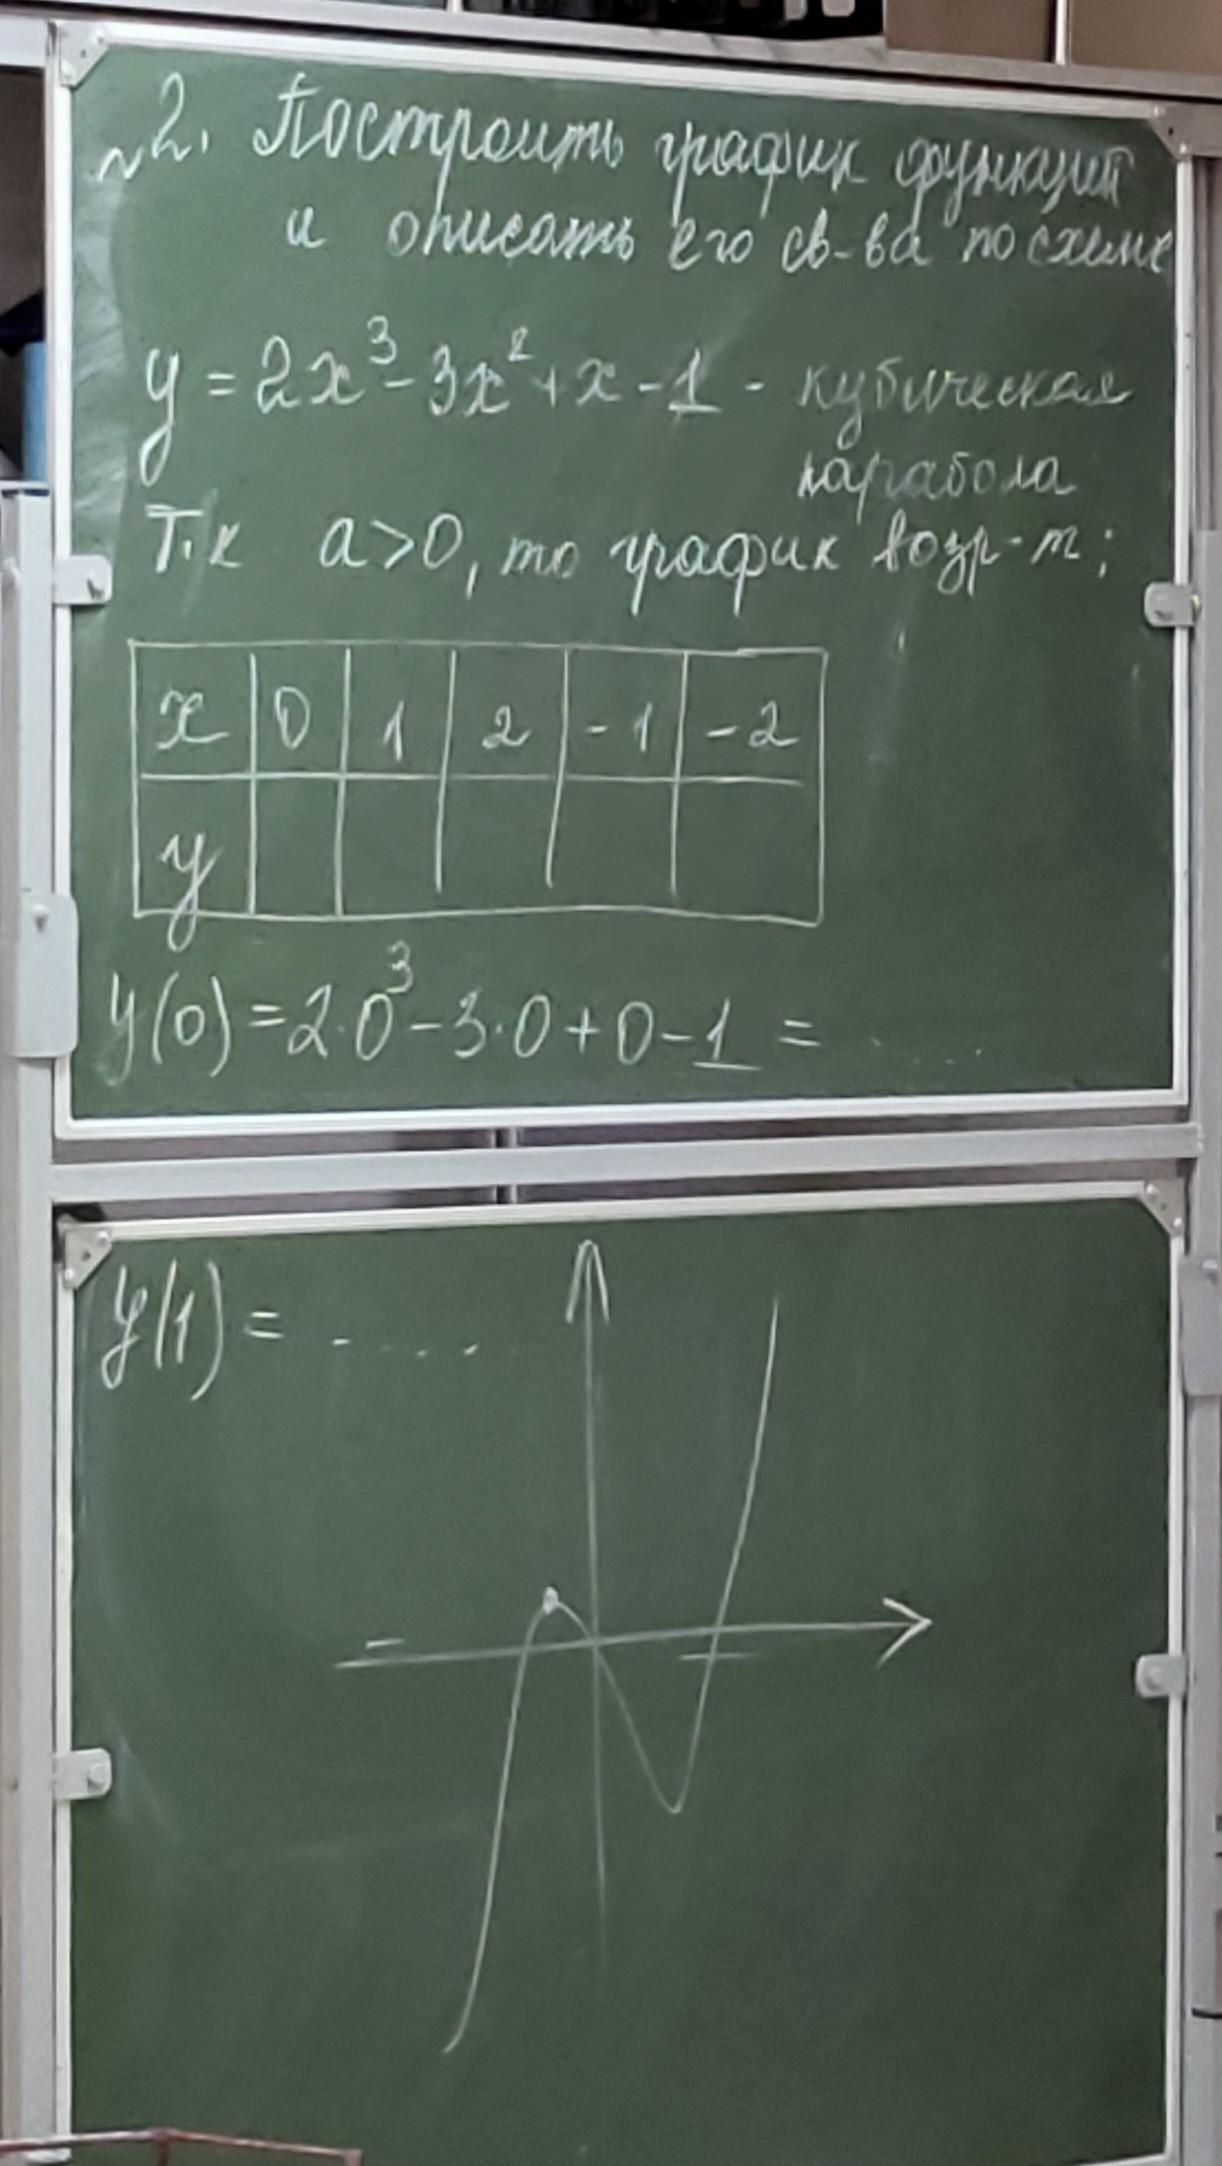 №2. Построить график функций
и описать его св-ва по схеме
y = 2x³ - 3x² + x - 1 - кубическая
парабола
Т.к a>0, то график возр-т;
x 0 1 2 -1 -2
y
y(0) = 2·0³ - 3·0 + 0 - 1 = .....
y(1) = .....